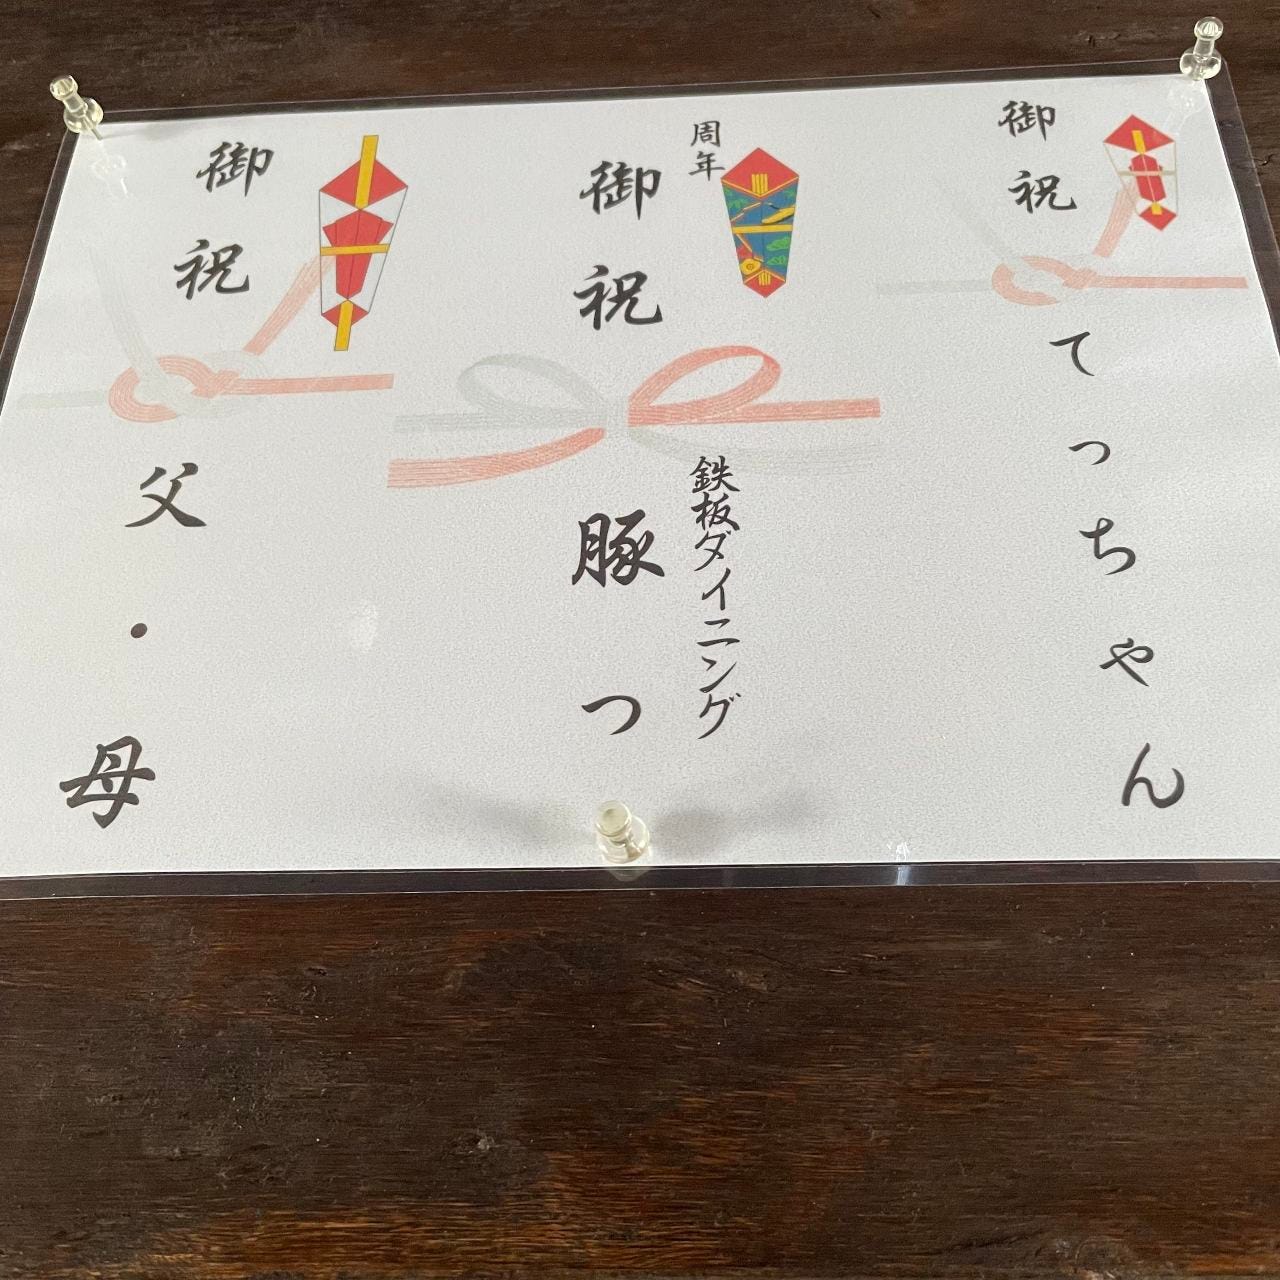 御祝
てっちゃん
周年
御祝
鉄板ダイニング
豚つ
御祝
父・母